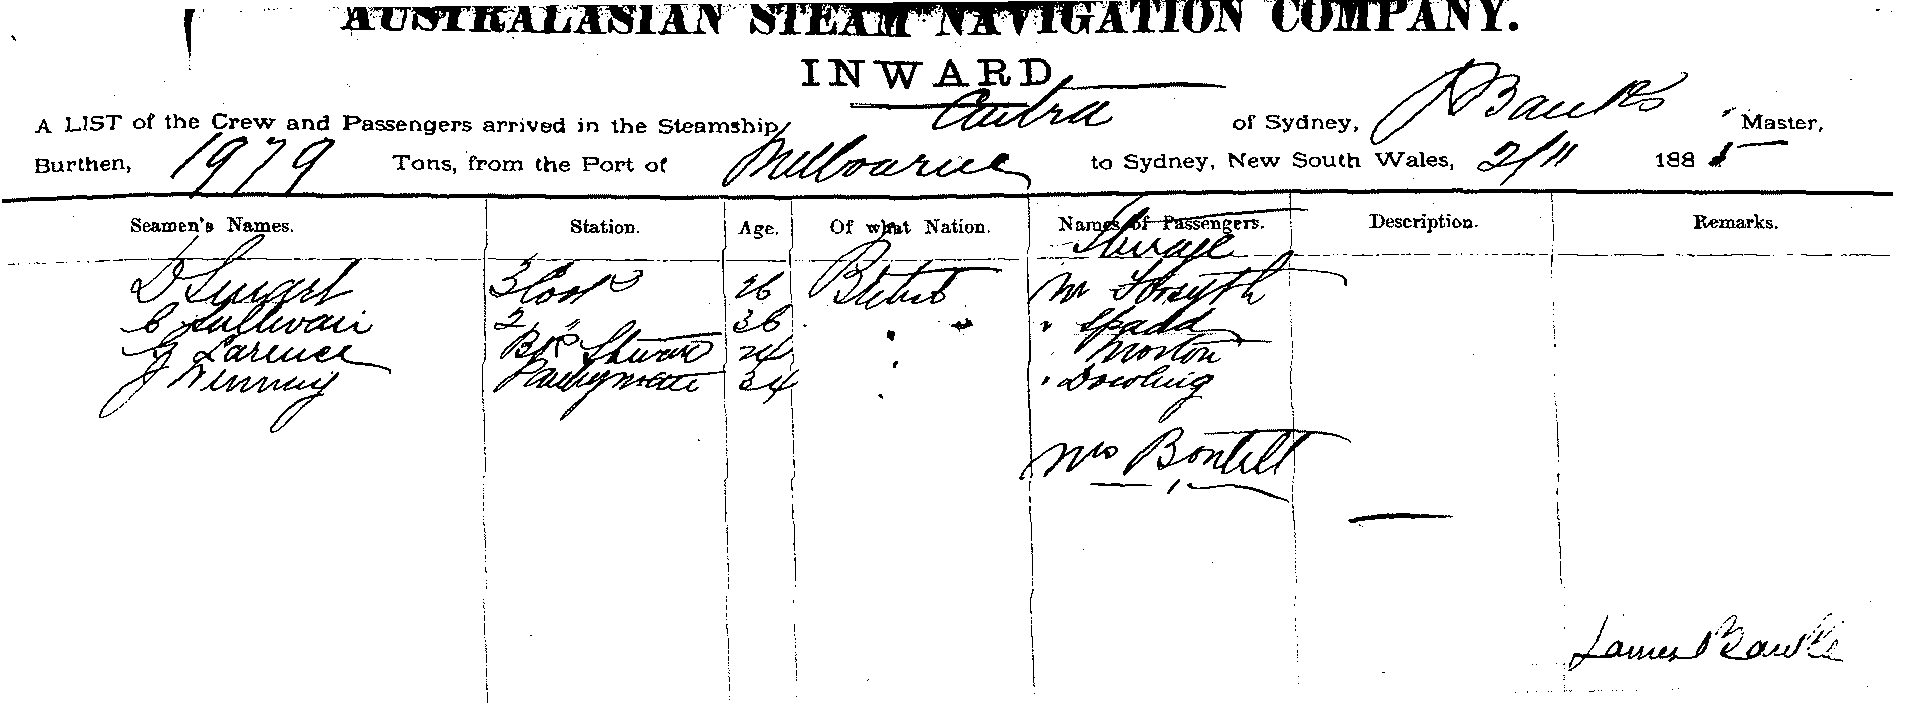 AUSTRALASIAN STEAM NAVIGATION COMPANY.
INWARD
A LIST of the Crew and Passengers arrived in the Steamship, Cintra of Sydney, J Banks Master,
Burthen, 1979 Tons, from the Port of Melbourne to Sydney, New South Wales, 2/11 1885
Seamen's Names. Station. Age. Of what Nation. Names of Passengers. Description. Remarks.
Steerage
D 3 Cook 26 British Mr Forsyth
C Sullivan 2 " 36 " " " Spadd
G Larence 24 " Morton
J Pantrymate 34 " " Dowling
Mrs
James Banks